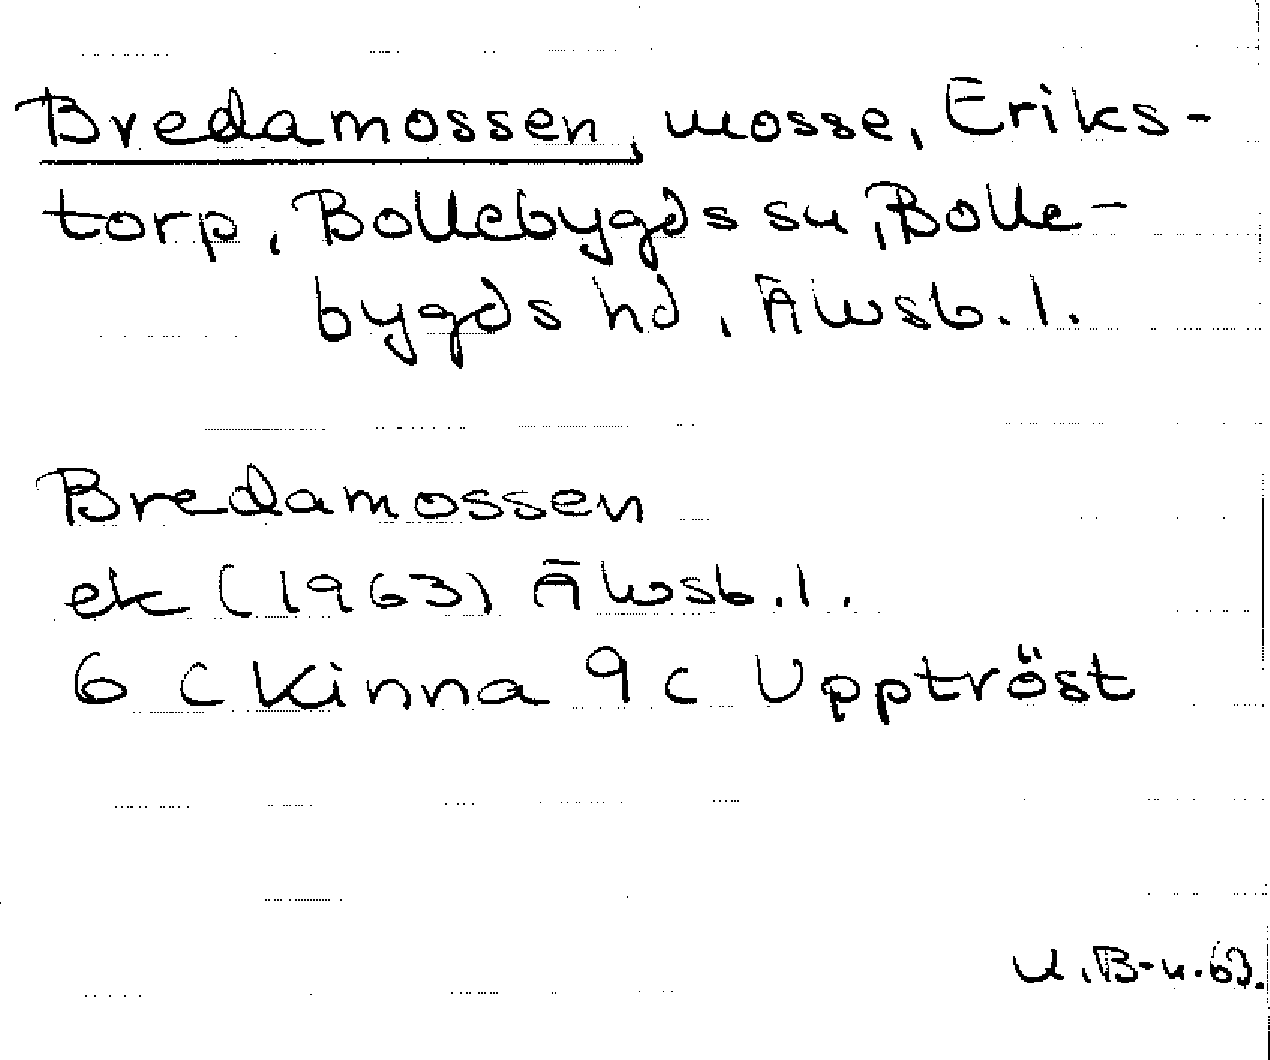 Bredamossen, mosse, Eriks-
torp, Bollebygds sn, Bolle-
bygds hd, Älvsb. l.
Bredamossen
ek (1963) Älvsb. l.
6 C Kinna 9 c Upptröst
U. B-n. 63.